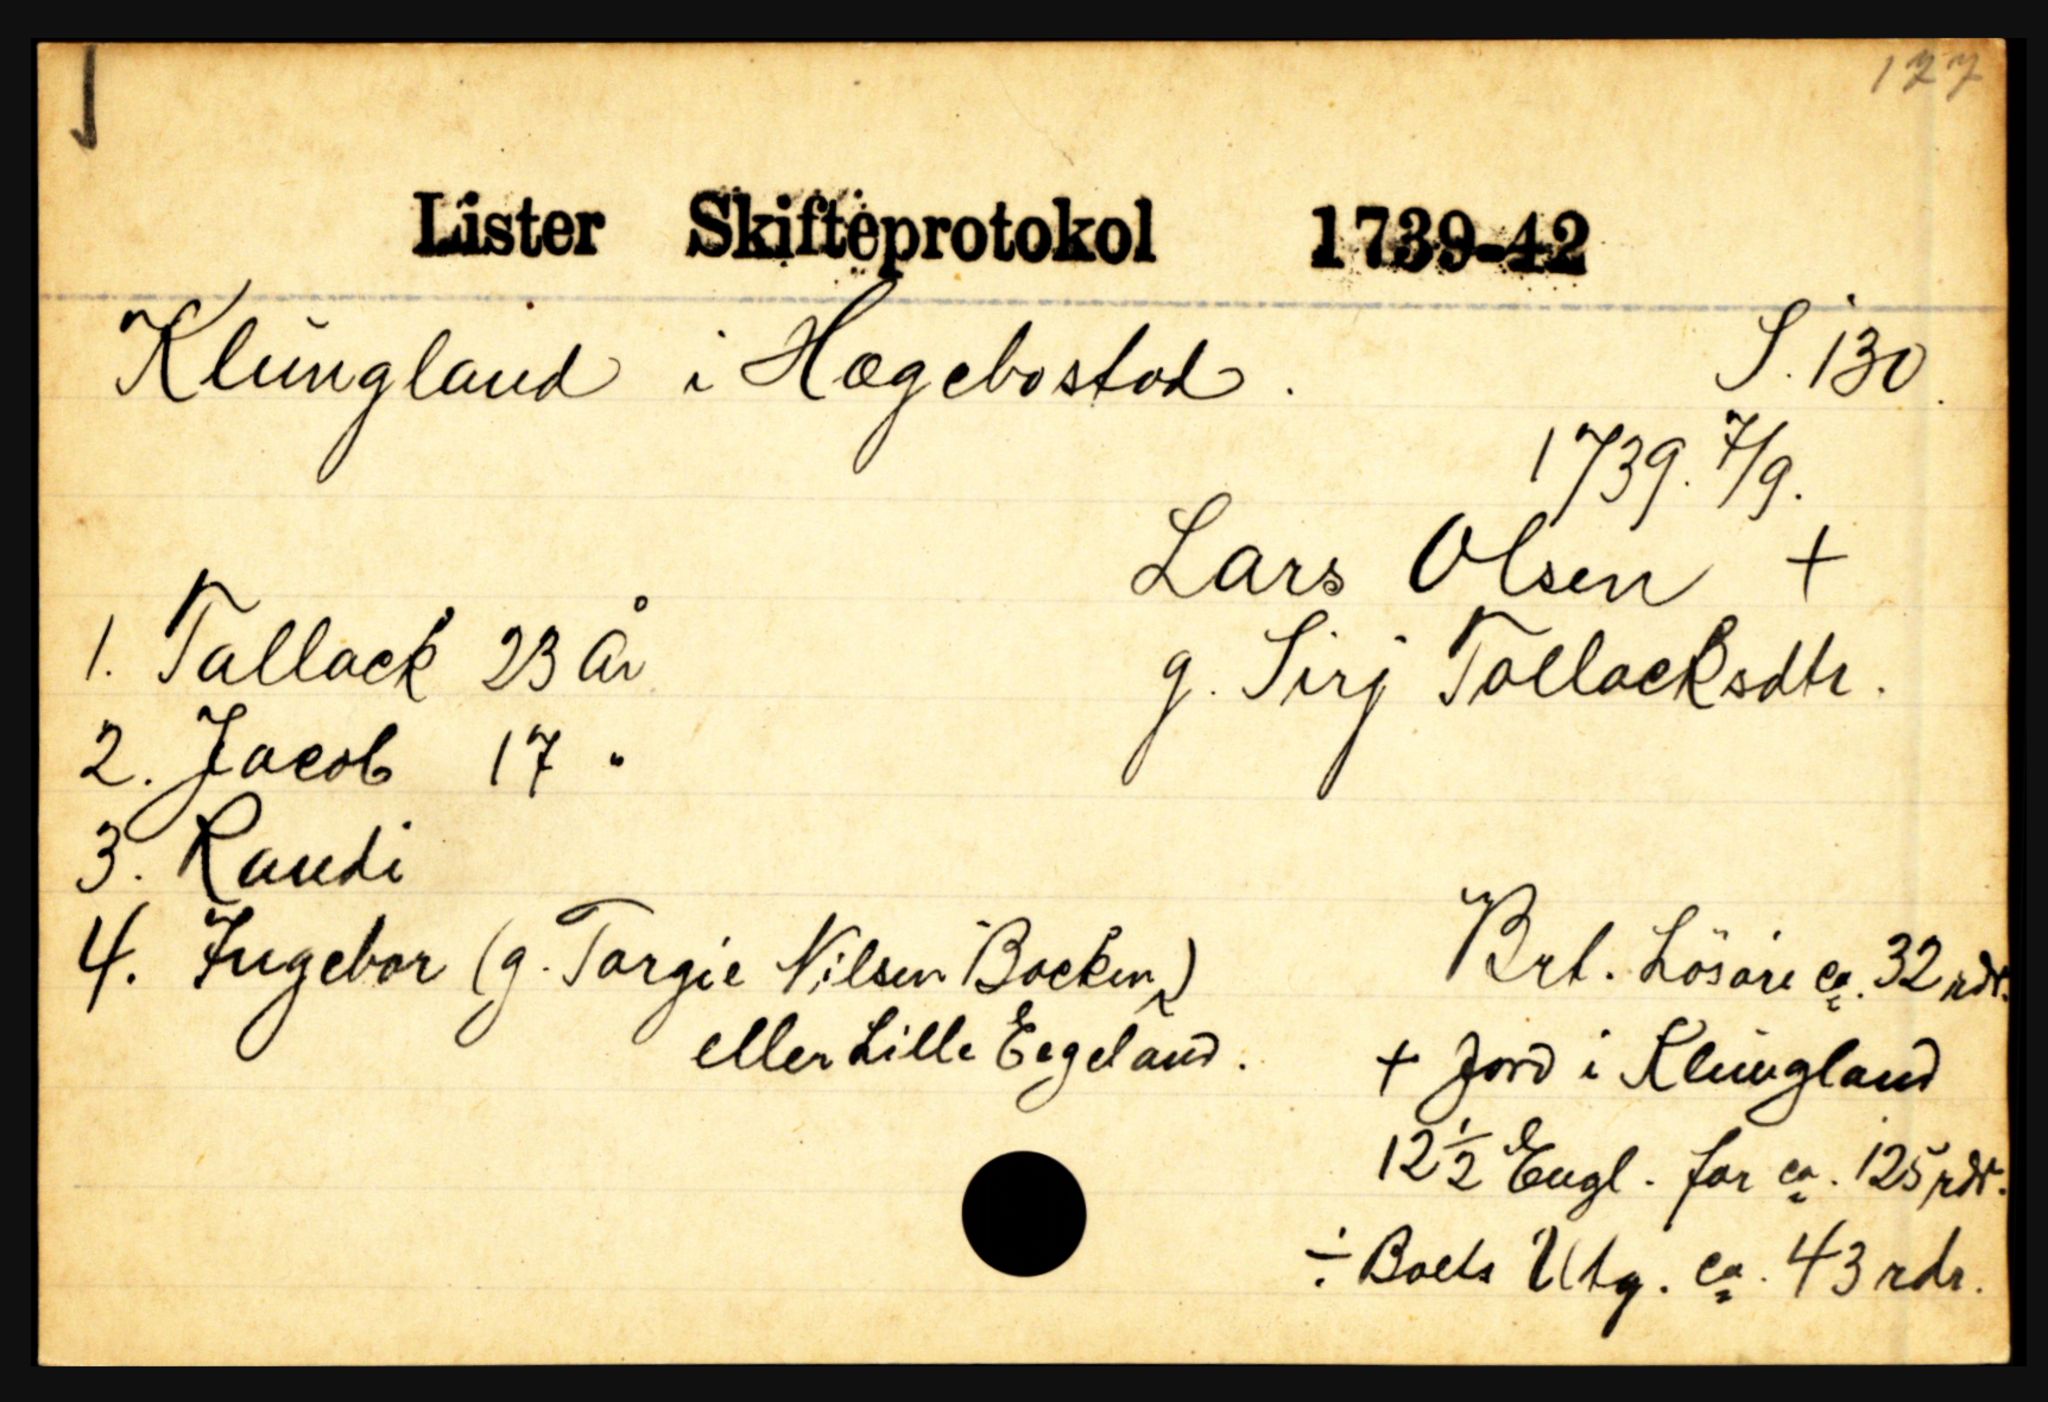 127
Lister Skifteprotokol 1739-42
Klungland i Hægebostad. S. 130.
1739. 7/9.
Lars Olsen +
g. Sirj Tollacksdtr.
1. Tallack 23 år
2. Jacob 17 "
3. Randi
4. Ingebor (g. Torgie Nilsen Bocken)
eller Lille Eegeland.
Brt. Løsøre ca. 32 rdr.
+ Jord i Klungland
12 1/2 Engl. for ca. 125 rdr.
÷ Boets Utg. ca. 43 rdr.